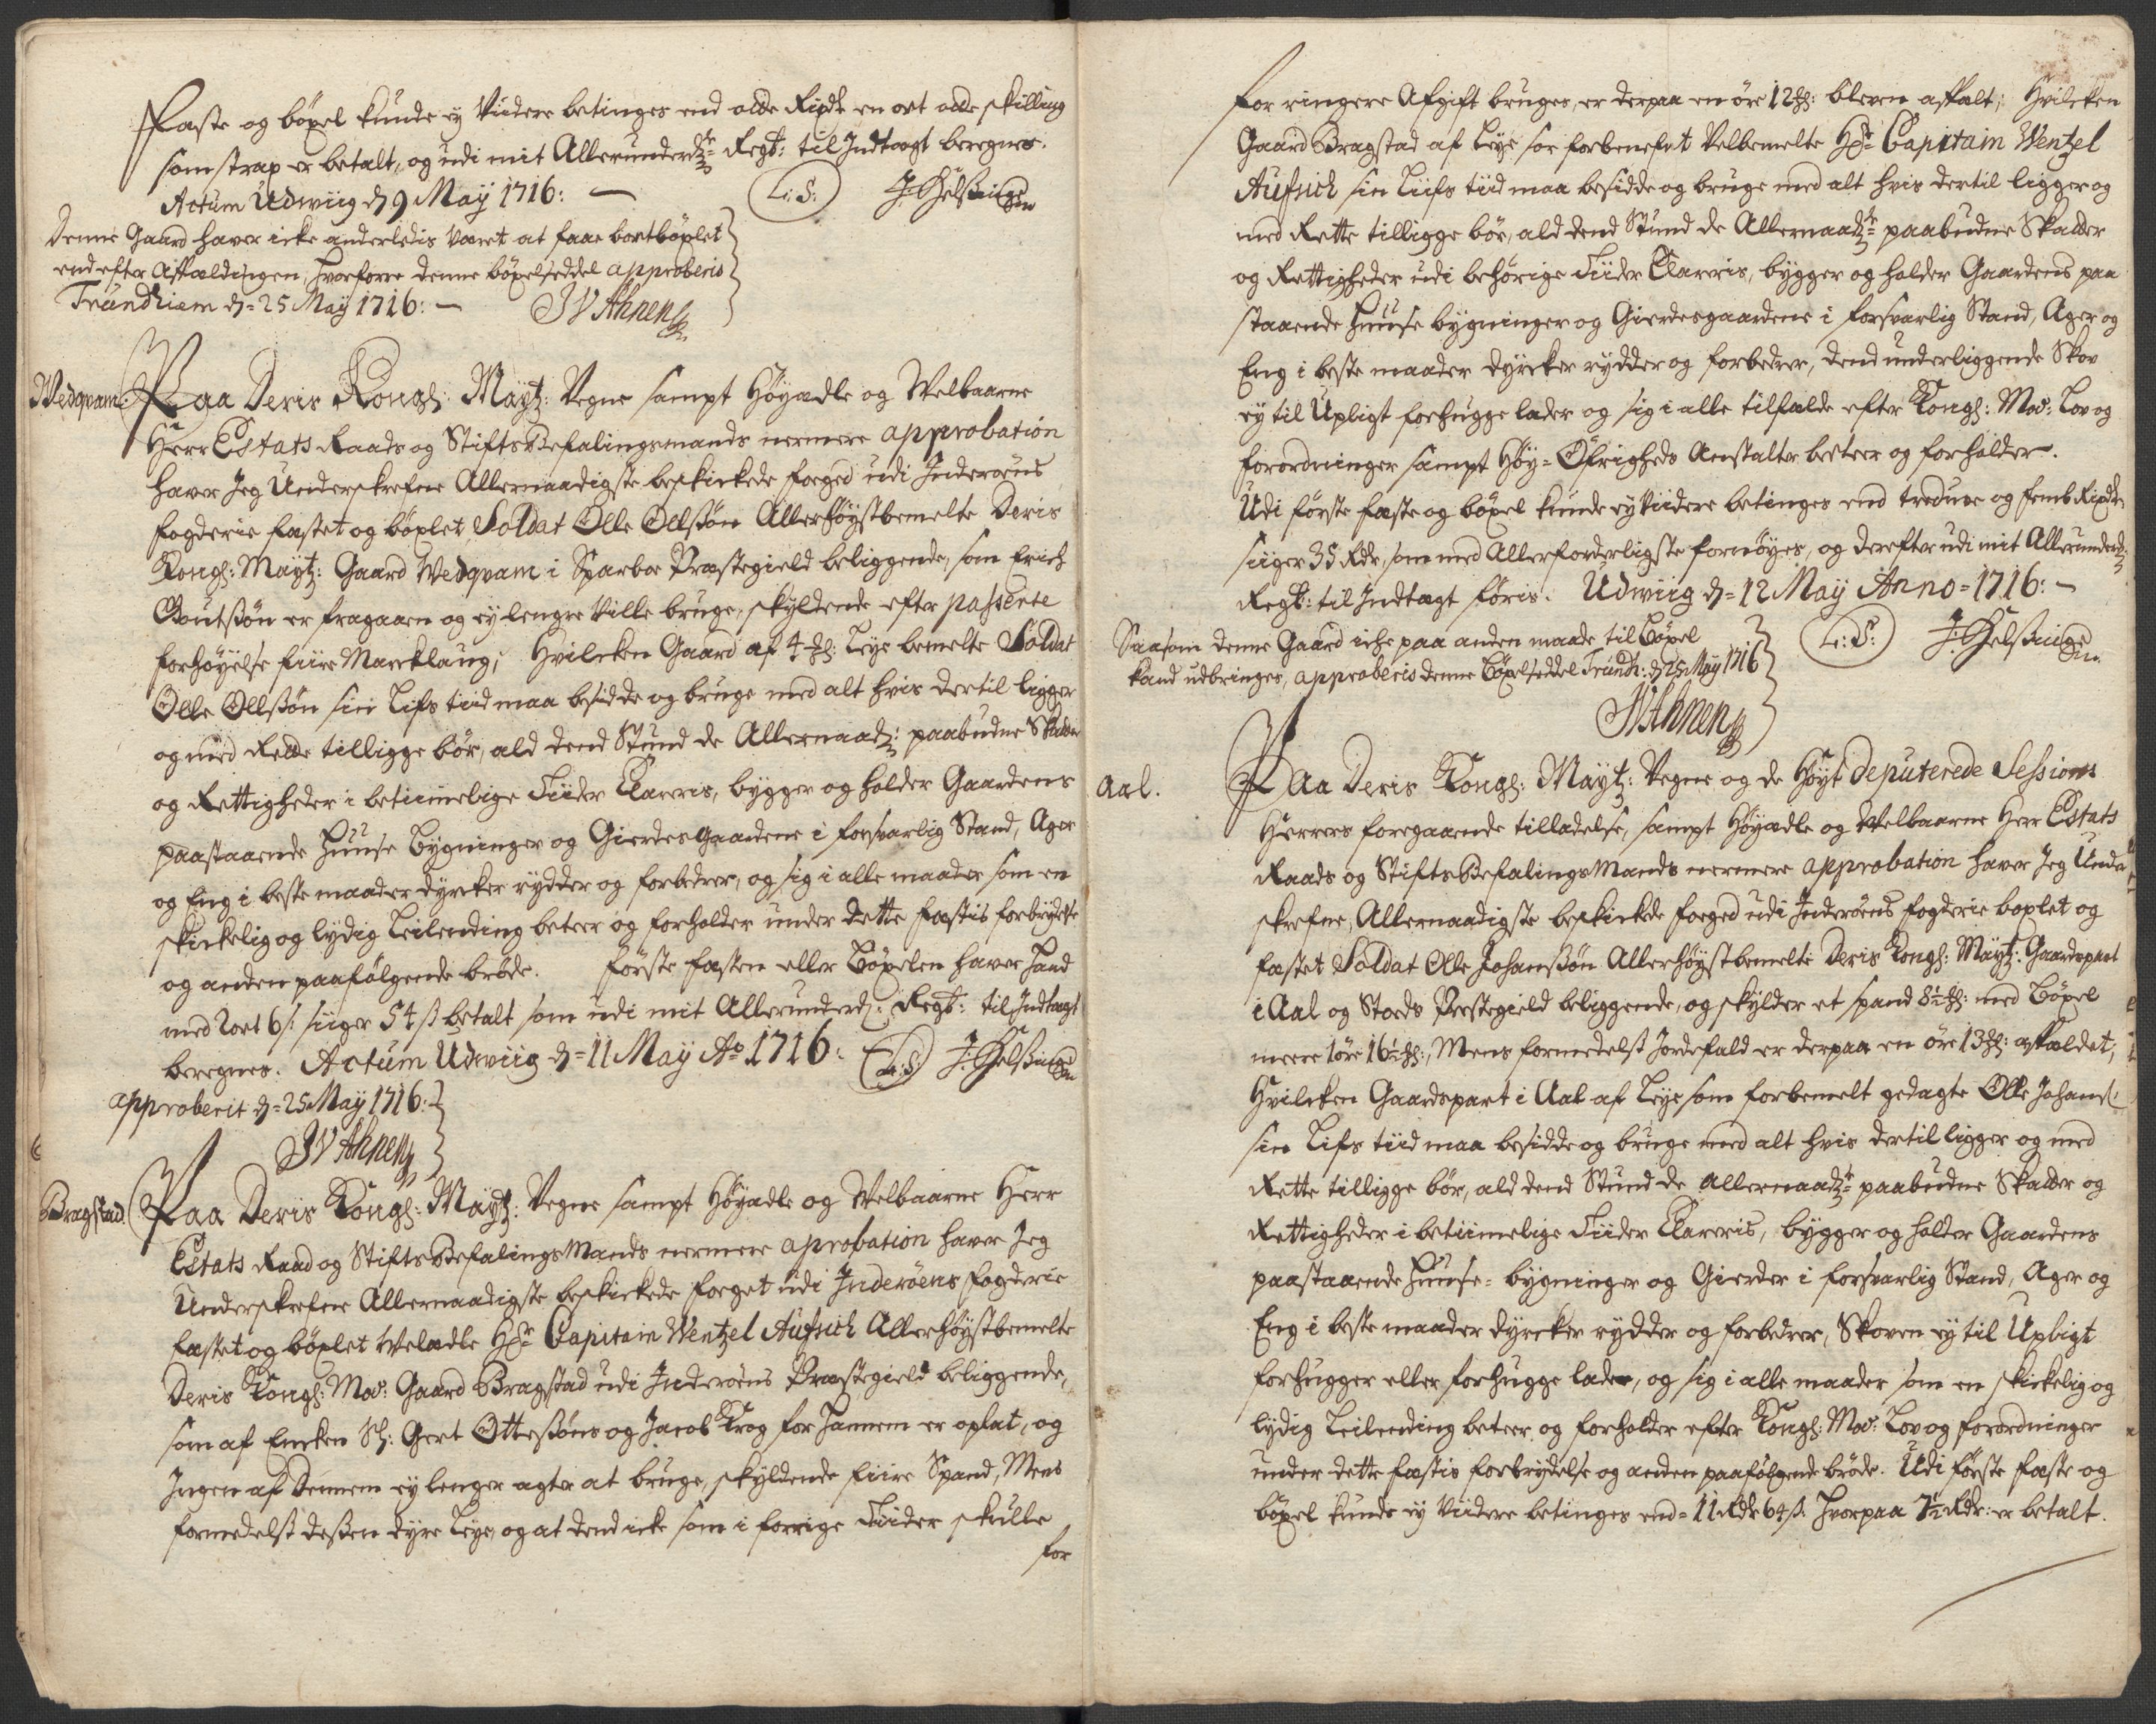 Fæste og böxel kunde ej viidere betinges end otte Rixdr en ort otte skilling
som strax er betalt, og udi mit Allerunderdste Regsk: til Indtægt beregnes.
Actum Udwiig d 9 May 1716: — L: S: J: Hvelßnings
Denne Gaard haver icke anderledis været at faae bortböxlet
end efter Affældingen, hvorforre denne böxelseddel approberis
Trundhiem d= 25 May 1716: — JVAhnen
Wedqvam
Paa Deris Kongl: Mayts: Vegne sampt Höyædle og Welbaarne
Herr Estats Raads og StiftsBefalingsmands nermere approbation
haver Jeg Underskrefne Allernaadigste beskickede foeged udi Inderøens
fogderie fæstet og böxlet Soldat Olle Ollssön Allerhöystbemelte Deris
Kongl: Mayts: Gaard Wedqvam i Sparboe Præstegield beliggende, som Erich
Knutssön er fragaaen og ej lengre ville bruge, skyldende efter passerte
forhöyelse fiire Marcklaug; Hvilcken Gaard af 4 : Leye bemelte Soldat
Olle Ollssön sin Lifs tiid maa besidde og bruge med alt hvis dertil ligger
og med Rette tilligge bör, ald dend Stund de Allernaads: paabudne Skatter
og Rettigheder i betiimelige Tiider Clareris, bygger og holder Gaardens
paastaaende Huuse Bygninger og Gierdesgaardene i forsvarlig Stand, Ager
og Eng i beste maader dyrcker rydder og forbedrer, og sig i alle maader som en
skickelig og lydig Leilending beteer og forholder under dette fæstis forbrydelse
og anden paafölgende bröde. Förste fæsten eller Böxelen haver hand
med 2 ort 6 s: siiger 54 s betalt som udi mit Allerunderd: Regsk: til Indtægt
beregnes. Actum Udwiig d= 11 May Ao 1716: L: S: J: Hvelßnings
approberit d= 25 May 1716:
JVAhnen
Bragstad
Paa Deris Kongl: Mayts: Vegne sampt Höyædle og Welbaarne Herr
Estats Raad og StiftsBefalingsMands nermere aprobation haver Jeg
Underskrefne Allernaadigste beskickede foeget udi Inderöens fogderie
fæstet og böxlet Welædle Hr Capitain Wentzel Aufsich Allerhöystbemelte
Deris Kongl: May: Gaard Bragstad udi Inderöens Præstegield beliggende,
som af Encken Sl: Gert Ottessöns og Jacob Krog for hannem er oplat, og
Ingen af Dennem ej lenger agter at bruge, skyldende fiire Spand, Mens
formedelst dessen dyre Leye, og at dend icke som i forrige Tiider skulle
for
for ringere Afgift bruges, er derpaa en öre 12 : bleven affalt; Hvilcken
Gaard Bragstad af Leye som forbenefnt Velbemelte Hr Capitain Wentzel
Aufsich sin Liifs tiid maa besidde og bruge med alt hvis dertil ligger og
med Rette tilligge bör, ald dend Stund de Allernaadste paabudne Skatter
og Rettigheder udi behörige Tiider Clareris, bygger og holder Gaardens paa
staaende Huuse bygninger og Gierdesgaardene i forsvarlig Stand, Ager og
Eng i beste maader dyrcker rydder og forbedrer, dend underliggende Skov
ej til Upligt forhugge lader og sig i alle tilfælde efter Kongl: May: Lov og
forordninger sampt Höy=Öfrigheds Anstalter beteer og forholder.
Udi förste fæste og böxel kunde ej viidere betinges end tredive og femb Rixdr
siiger 35 Rdr, som med Allerforderligste fornöyes, og derefter udi mit Allerunderd:
Regsk: til Indtægt föris. Udwiig d= 12 May Anno= 1716: —
L: S: J: Hvelßnings
Saasom denne Gaard iche paa anden maade til Böxel
kand udbringes, approberis denne Böxelseddel Trundh: d 25 May 1716
JVAhnen
Aal.
Paa Deris Kongl: Mayts: Vegne og de Höyt deputerede Sessions
Herrers foregaaende tilladelse, sampt Höyædle og Welbaarne Herr Estats
Raads og StiftsBefalingsMands nermere approbation haver Jeg Under
skrefne, Allernaadigste beskickede foeged udi Inderöens fogderie boxlet og
fæstet Soldat Olle Johanssön Allerhöystbemelte Deris Kongl: Mayts: Gaardspart
i Aal og Stords Prestegield beliggende, og skylder et spand 8½ : med Böxel
meere 1 öre 16½ :, Mens formedelst Jordefald er derpaa en öre 13 : affældet;
Hvilcken Gaardspart i Aal af Leye som forbemelt gedagte Olle Johans:
sin Lifs tiid maa besidde og bruge med alt hvis dertil ligger og med
Rette tilligge bör, ald dend Stund de allernaadste paabudne Skatter og
Rettigheder i betiimelige Tiider Clareris, bygger og holder Gaardens
paastaaende Huuse= bygninger og Gierder i forsvarlig Stand, Ager og
Eng i beste maader dyrcker rydder og forbedrer, Skoven ej til Upligt
forhugger eller forhugge lader, og sig i alle maader som en skickelig og
lydig Leilending beteer og forholder efter Kongl: May: Lov og forordninger
under dette fæstis forbrydelse og anden paafölgende bröde. Udi förste fæste og
böxel kunde ej viidere betinges end= 11 Rdr 64 s: hvorpaa 7½ Rdr: er betalt.